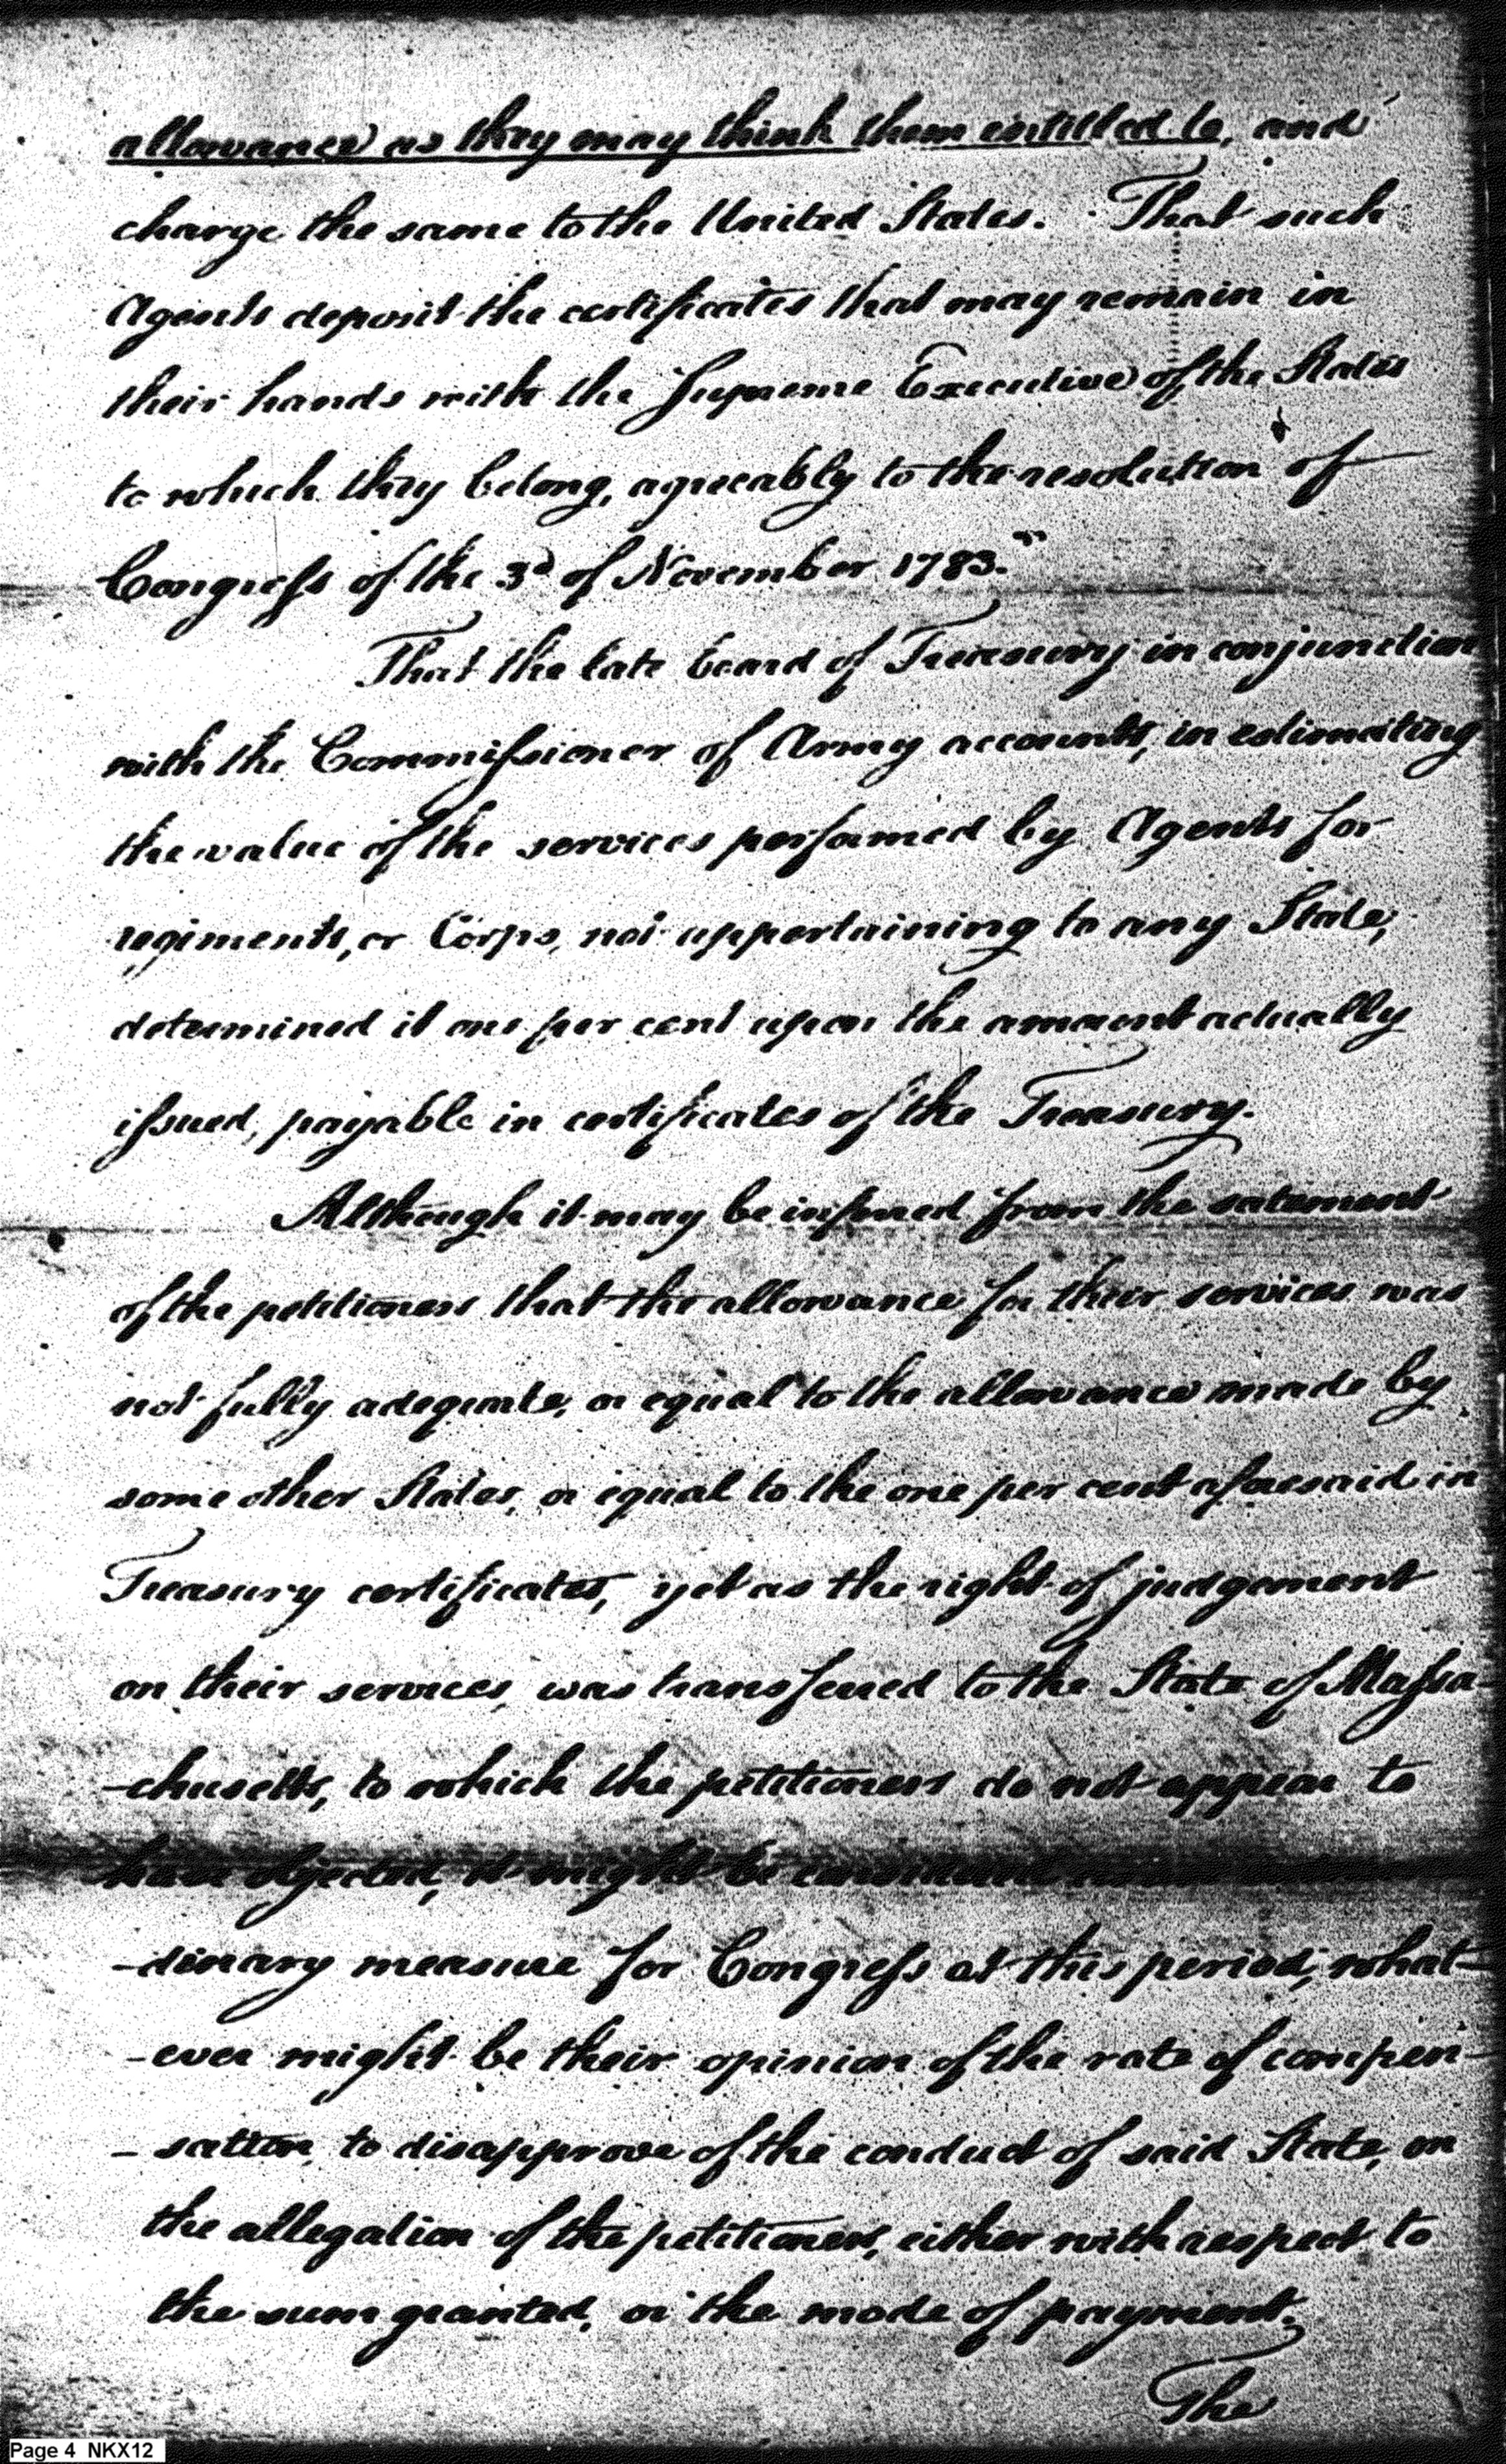 allowance as they may think them entitled to, and
charge the same to the United States. That such
Agents deposit the certificates that may remain in
their hands with the Supreme Executive of the States
to which they belong, agreeably to the resolution of
Congress of the 3d of November 1783."
That the late board of Treasury in conjunction
with the Commissioner of Army accounts, in estimating
the value of the services perfomed by Agents for
regiments, or Corps, not appertaining to any State,
determined it one per cent upon the amount actually
issued, payable in certificates of the Treasury.
Although it may be inferred from the satement
of the petitioners that the allowance for their services was
not fully adequate, or equal to the allowance made by
some other States, or equal to the one per cent aforesaid in
Treasury certificates, yet as the right of judgement
on their services, was transferred to the State of Massa-
-chusetts, to which the petitioners do not appear to
have objected, it might be considered
-dinary measure for Congress at this period, what-
-ever might be their opinion of the rate of compen-
-sation, to disapprove of the conduct of said State, on
the allegation of the petitioners, either with respect to
the sum granted, or the mode of payment.
The
Page 4 NKX12